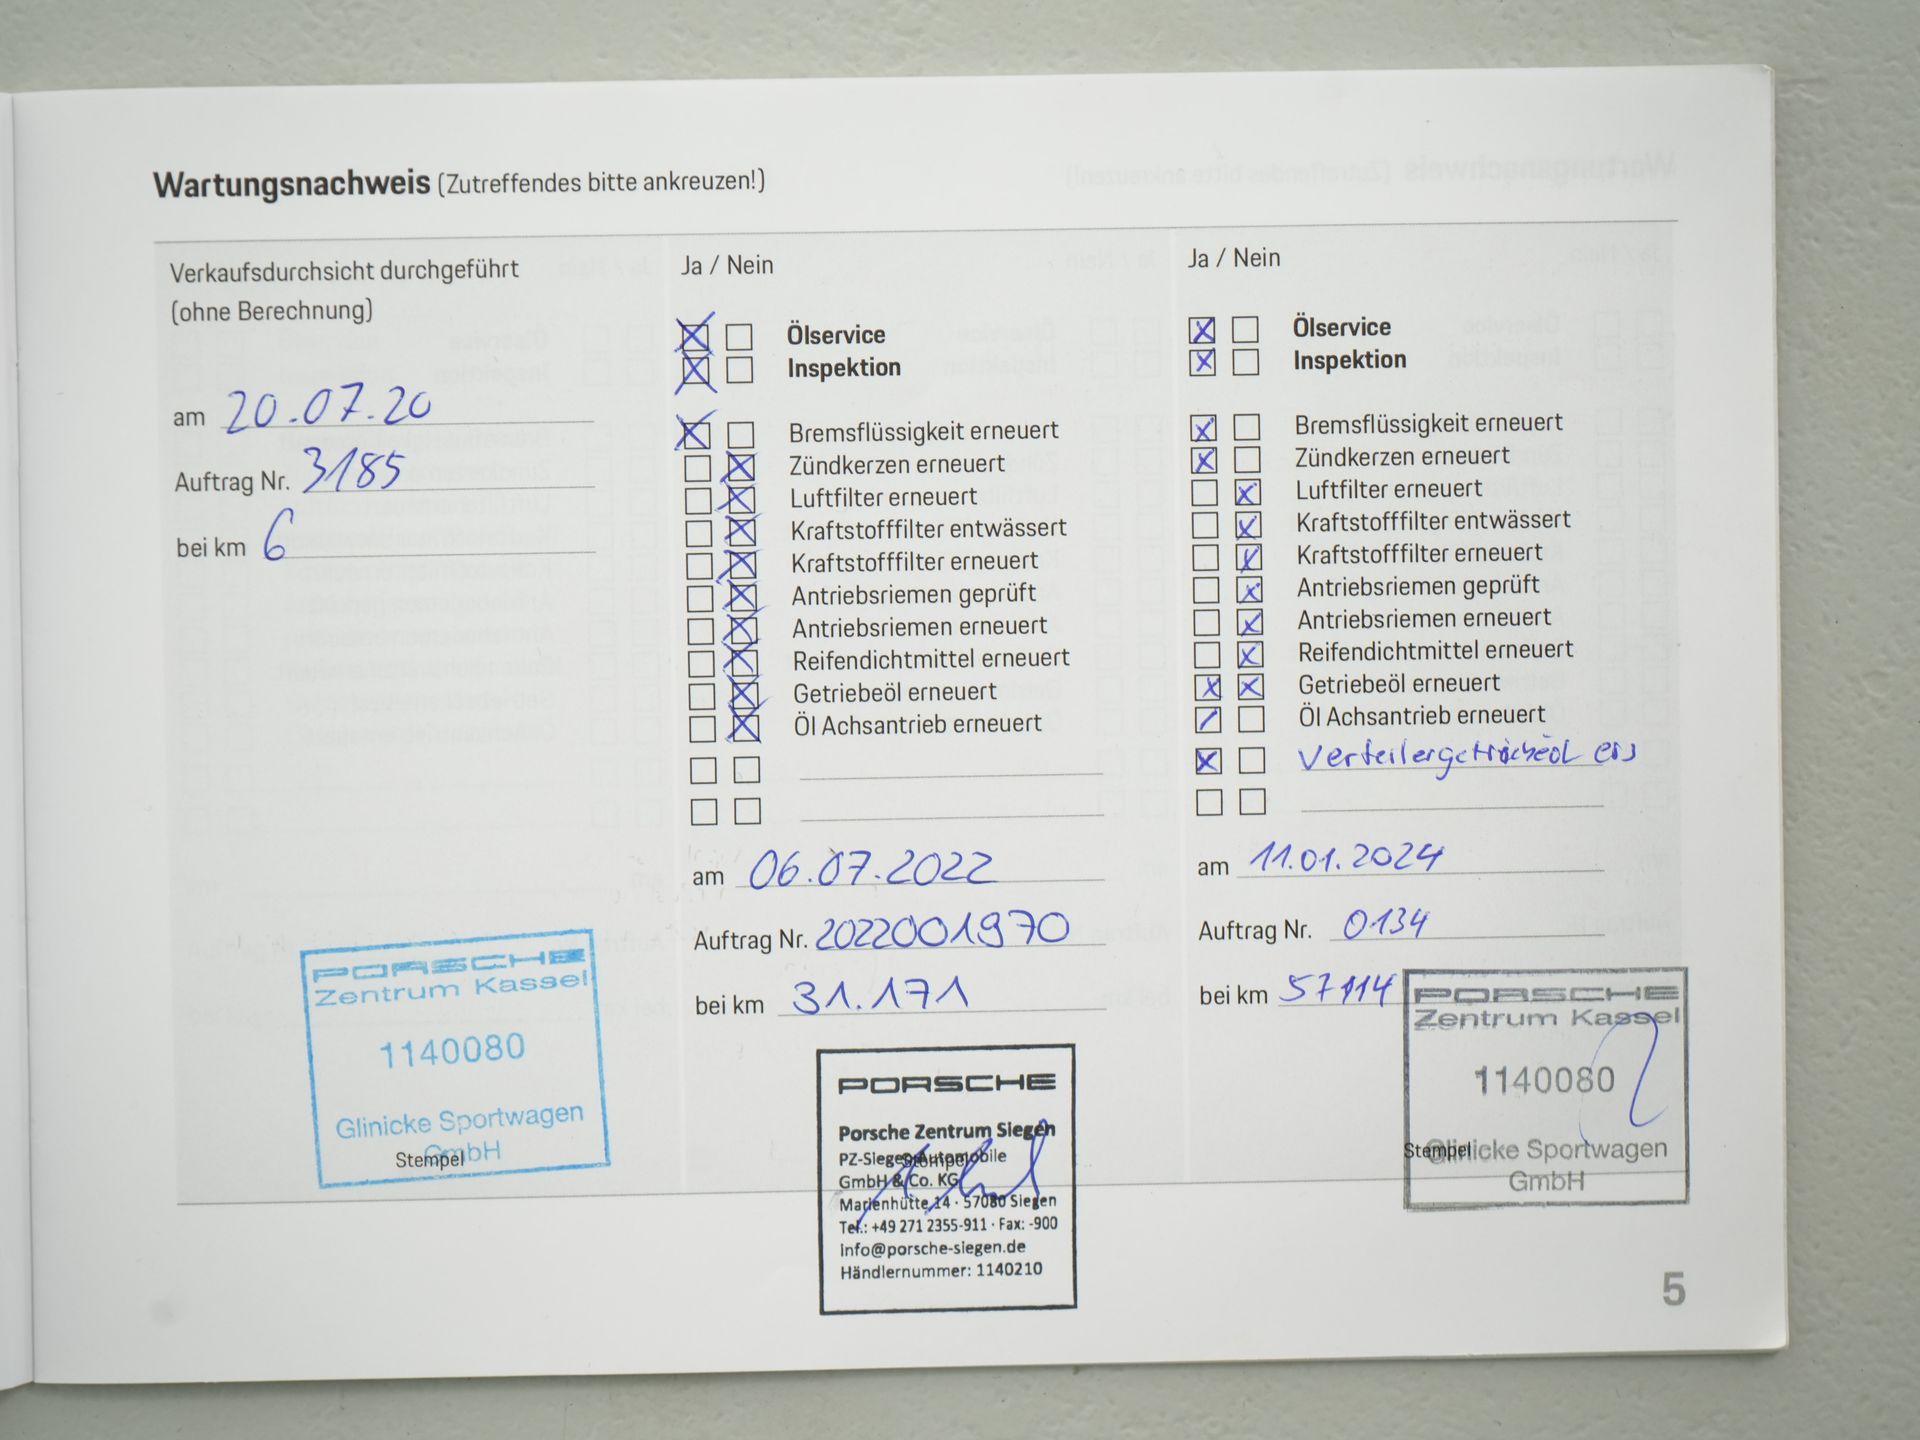 Wartungsnachweis (Zutreffendes bitte ankreuzen!)
Verkaufsdurchsicht durchgeführt
(ohne Berechnung)
am 20.07.20
Auftrag Nr. 3185
bei km 6
PORSCHE
Zentrum Kassel
1140080
Glinicke Sportwagen
GmbH
Stempel
Ja / Nein
Ölservice
Inspektion
Bremsflüssigkeit erneuert
Zündkerzen erneuert
Luftfilter erneuert
Kraftstofffilter entwässert
Kraftstofffilter erneuert
Antriebsriemen geprüft
Antriebsriemen erneuert
Reifendichtmittel erneuert
Getriebeöl erneuert
Öl Achsantrieb erneuert
am 06.07.2022
Auftrag Nr. 2022001970
bei km 31.171
PORSCHE
Porsche Zentrum Siegen
PZ-Siegen Automobile
Stempel
GmbH & Co. KG
Marienhütte 14 · 57080 Siegen
Tel.: +49 271 2355-911 · Fax: -900
info@porsche-siegen.de
Händlernummer: 1140210
Ja / Nein
Ölservice
Inspektion
Bremsflüssigkeit erneuert
Zündkerzen erneuert
Luftfilter erneuert
Kraftstofffilter entwässert
Kraftstofffilter erneuert
Antriebsriemen geprüft
Antriebsriemen erneuert
Reifendichtmittel erneuert
Getriebeöl erneuert
Öl Achsantrieb erneuert
am 11.01.2024
Auftrag Nr. 0134
bei km 57114
PORSCHE
Zentrum Kassel
1140080
Stempel
Glinicke Sportwagen
GmbH
5